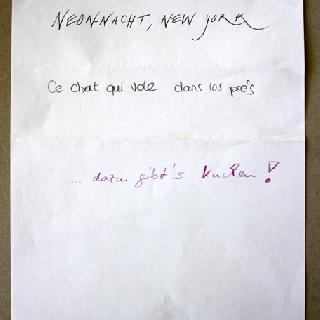 NEONNACHT, NEW YORK
Ce chat qui vole dans los prés
... dazu gibt's Kuchen!